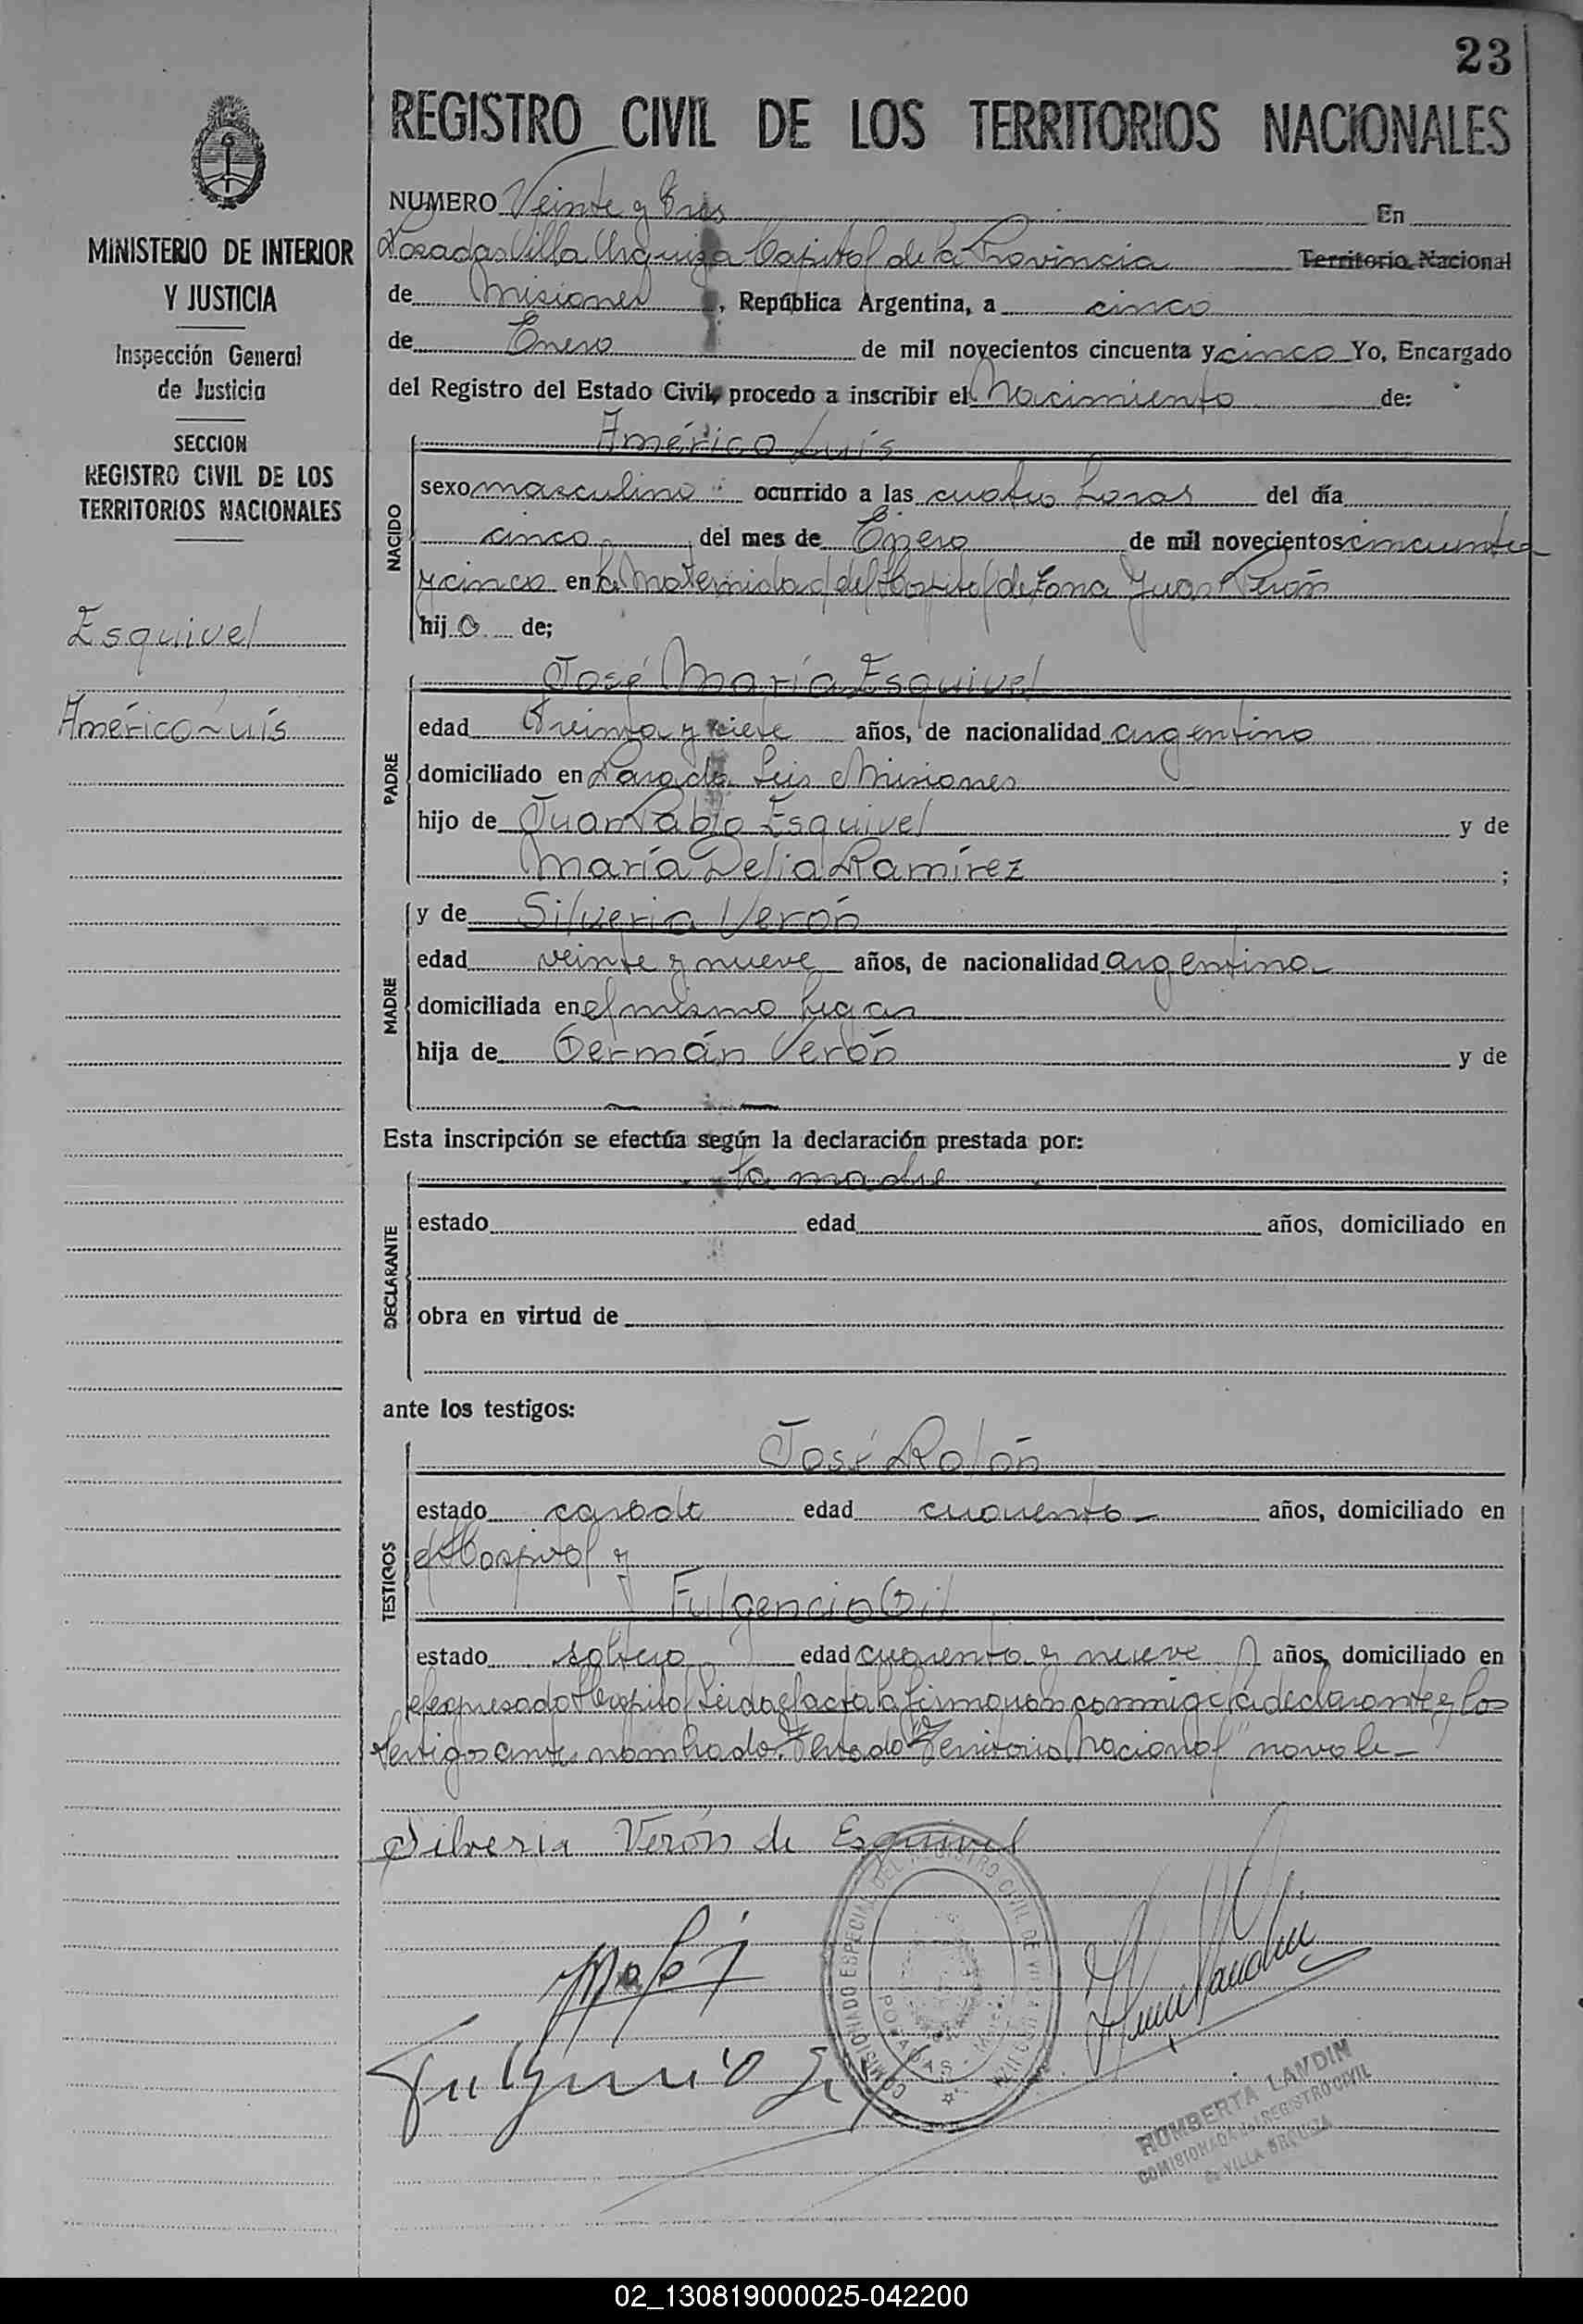 23
REGISTRO CIVIL DE LOS TERRITORIOS NACIONALES
MINISTERIO DE INTERIOR
Y JUSTICIA
Inspección General
de Justicia
SECCION
REGISTRO CIVIL DE LOS
TERRITORIOS NACIONALES
Esquivel
Américo Luís
NUMERO Veinte y Tres En
Posadas Villa Urquiza Capital de la Provincia Territorio Nacional
de Misiones, República Argentina, a cinco
de Enero de mil novecientos cincuenta y cinco Yo, Encargado
del Registro del Estado Civil, procedo a inscribir el Nacimiento de:
NACIDO
Américo Luís
sexo masculino ocurrido a las cuatro horas del día
cinco del mes de Enero de mil novecientos cincuenta
y cinco en la Maternidad del Hospital de Zona Juan Perón
hijo de;
PADRE
José María Esquivel
edad Treinta y siete años, de nacionalidad argentino
domiciliado en Parada Leis Misiones
hijo de Juan Pablo Esquivel y de
María Delia Ramírez ;
MADRE
y de Silveria Verón
edad veinte y nueve años, de nacionalidad argentina
domiciliada en el mismo lugar
hija de Germán Verón y de
Esta inscripción se efectúa según la declaración prestada por:
DECLARANTE
la madre
estado edad años, domiciliado en
obra en virtud de
ante los testigos:
TESTIGOS
José Rolón
estado casado edad cuarenta años, domiciliado en
el Hospital y
Fulgencio Gil
estado soltero edad cuarenta y nueve años, domiciliado en
el expresado Hospital Leida el acta la firmaron conmigo la declarante y los
testigos antes nombrado. Testado "Territorio Nacional" no vale
Silveria Verón de Esquivel
Fulgencio Gil
COMISIONADO ESPECIAL DEL REGISTRO CIVIL DE VILLA URQUIZA
POSADAS - MIS.
HUMBERTA LANDIN
COMISIONADA REGISTRO CIVIL
de VILLA URQUIZA
02_130819000025-042200